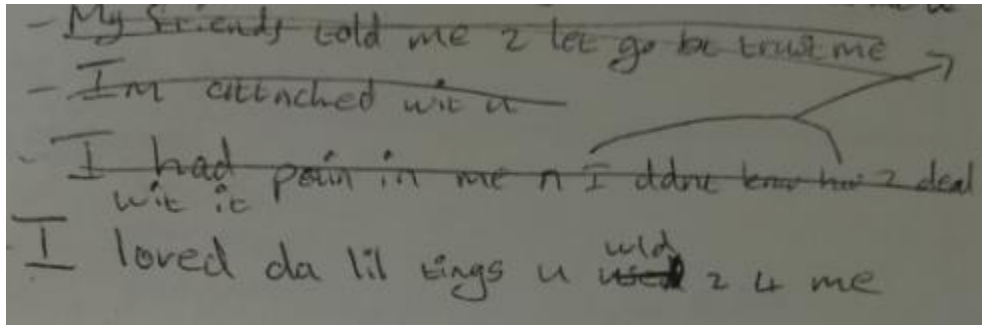 - My friends told me 2 let go bt trust me
- Im attached wit u
- I had pain in me n I ddnt know how 2 deal
wit it
- I loved da lil tings u wld 2 4 me